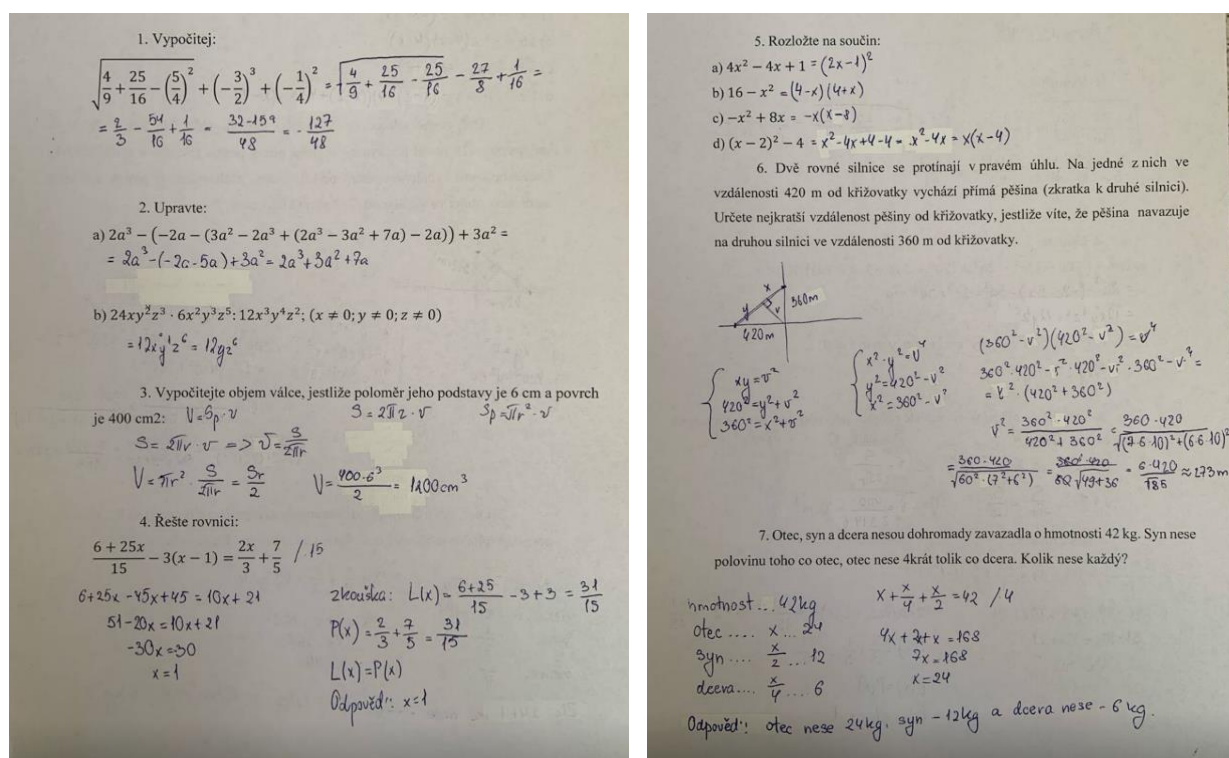 1. Vypočitej:
√(4/9 + 25/16 − (5/4)²) + (−3/2)³ + (−1/4)² = √(4/9 + 25/16 − 25/16) − 27/8 + 1/16 =
= 2/3 − 54/16 + 1/16 = (32-159)/48 = − 127/48
2. Upravte:
a) 2a³ − (−2a − (3a² − 2a³ + (2a³ − 3a² + 7a) − 2a)) + 3a² =
= 2a³-(-2a-5a)+3a² = 2a³+3a²+7a
b) 24xy²z³ · 6x²y³z⁵: 12x³y⁴z²; (x ≠ 0; y ≠ 0; z ≠ 0)
= 12x y¹z⁶ = 12yz⁶
3. Vypočitejte objem válce, jestliže poloměr jeho podstavy je 6 cm a povrch
je 400 cm2: V=Sp·v S = 2πr·v Sp=πr²·v
S = 2πr·v => v = S/2πr
V = πr² · S/2πr = Sr/2 V = 400·6³/2 = 1200cm³
4. Řešte rovnici:
(6 + 25x)/15 − 3(x − 1) = 2x/3 + 7/5 /·15
6+25x-45x+45 = 10x+21
51-20x=10x+21
-30x=30
x=1
zkouška: L(x) = (6+25)/15 -3+3 = 31/15
P(x) = 2/3 + 7/5 = 31/15
L(x)=P(x)
Odpověď: x=1
5. Rozložte na součin:
a) 4x² − 4x + 1 = (2x-1)²
b) 16 − x² = (4-x)(4+x)
c) −x² + 8x = -x(x-8)
d) (x − 2)² − 4 = x²-4x+4-4 = x²-4x = x(x-4)
6. Dvě rovné silnice se protínají v pravém úhlu. Na jedné z nich ve
vzdálenosti 420 m od křižovatky vychází přímá pěšina (zkratka k druhé silnici).
Určete nejkratší vzdálenost pěšiny od křižovatky, jestliže víte, že pěšina navazuje
na druhou silnici ve vzdálenosti 360 m od křižovatky.
x
y
v
360m
420m
xy=v²
420²=y²+v²
360²=x²+v²
x²·y²=v⁴
y²=420²-v²
x²=360²-v²
(360²-v²)(420²-v²)=v⁴
360²·420²-v²·420²-v²·360²-v⁴=
= v²·(420²+360²)
v² = 360²·420²/(420²+360²) = 360·420/√((7·6·10)²+(6·6·10)²
= 360·420/√(60²·(7²+6²)) = 360·420/60√(49+36) = 6·420/√85 ≈ 273m
7. Otec, syn a dcera nesou dohromady zavazadla o hmotnosti 42 kg. Syn nese
polovinu toho co otec, otec nese 4krát tolik co dcera. Kolik nese každý?
hmotnost...42kg
otec .... x ... 24
syn .... x/2 ... 12
dcera.... x/4 .... 6
x + x/4 + x/2 = 42 /4
4x+2x+x=168
7x=168
x=24
Odpověď: otec nese 24kg, syn - 12kg a dcera nese - 6 kg.